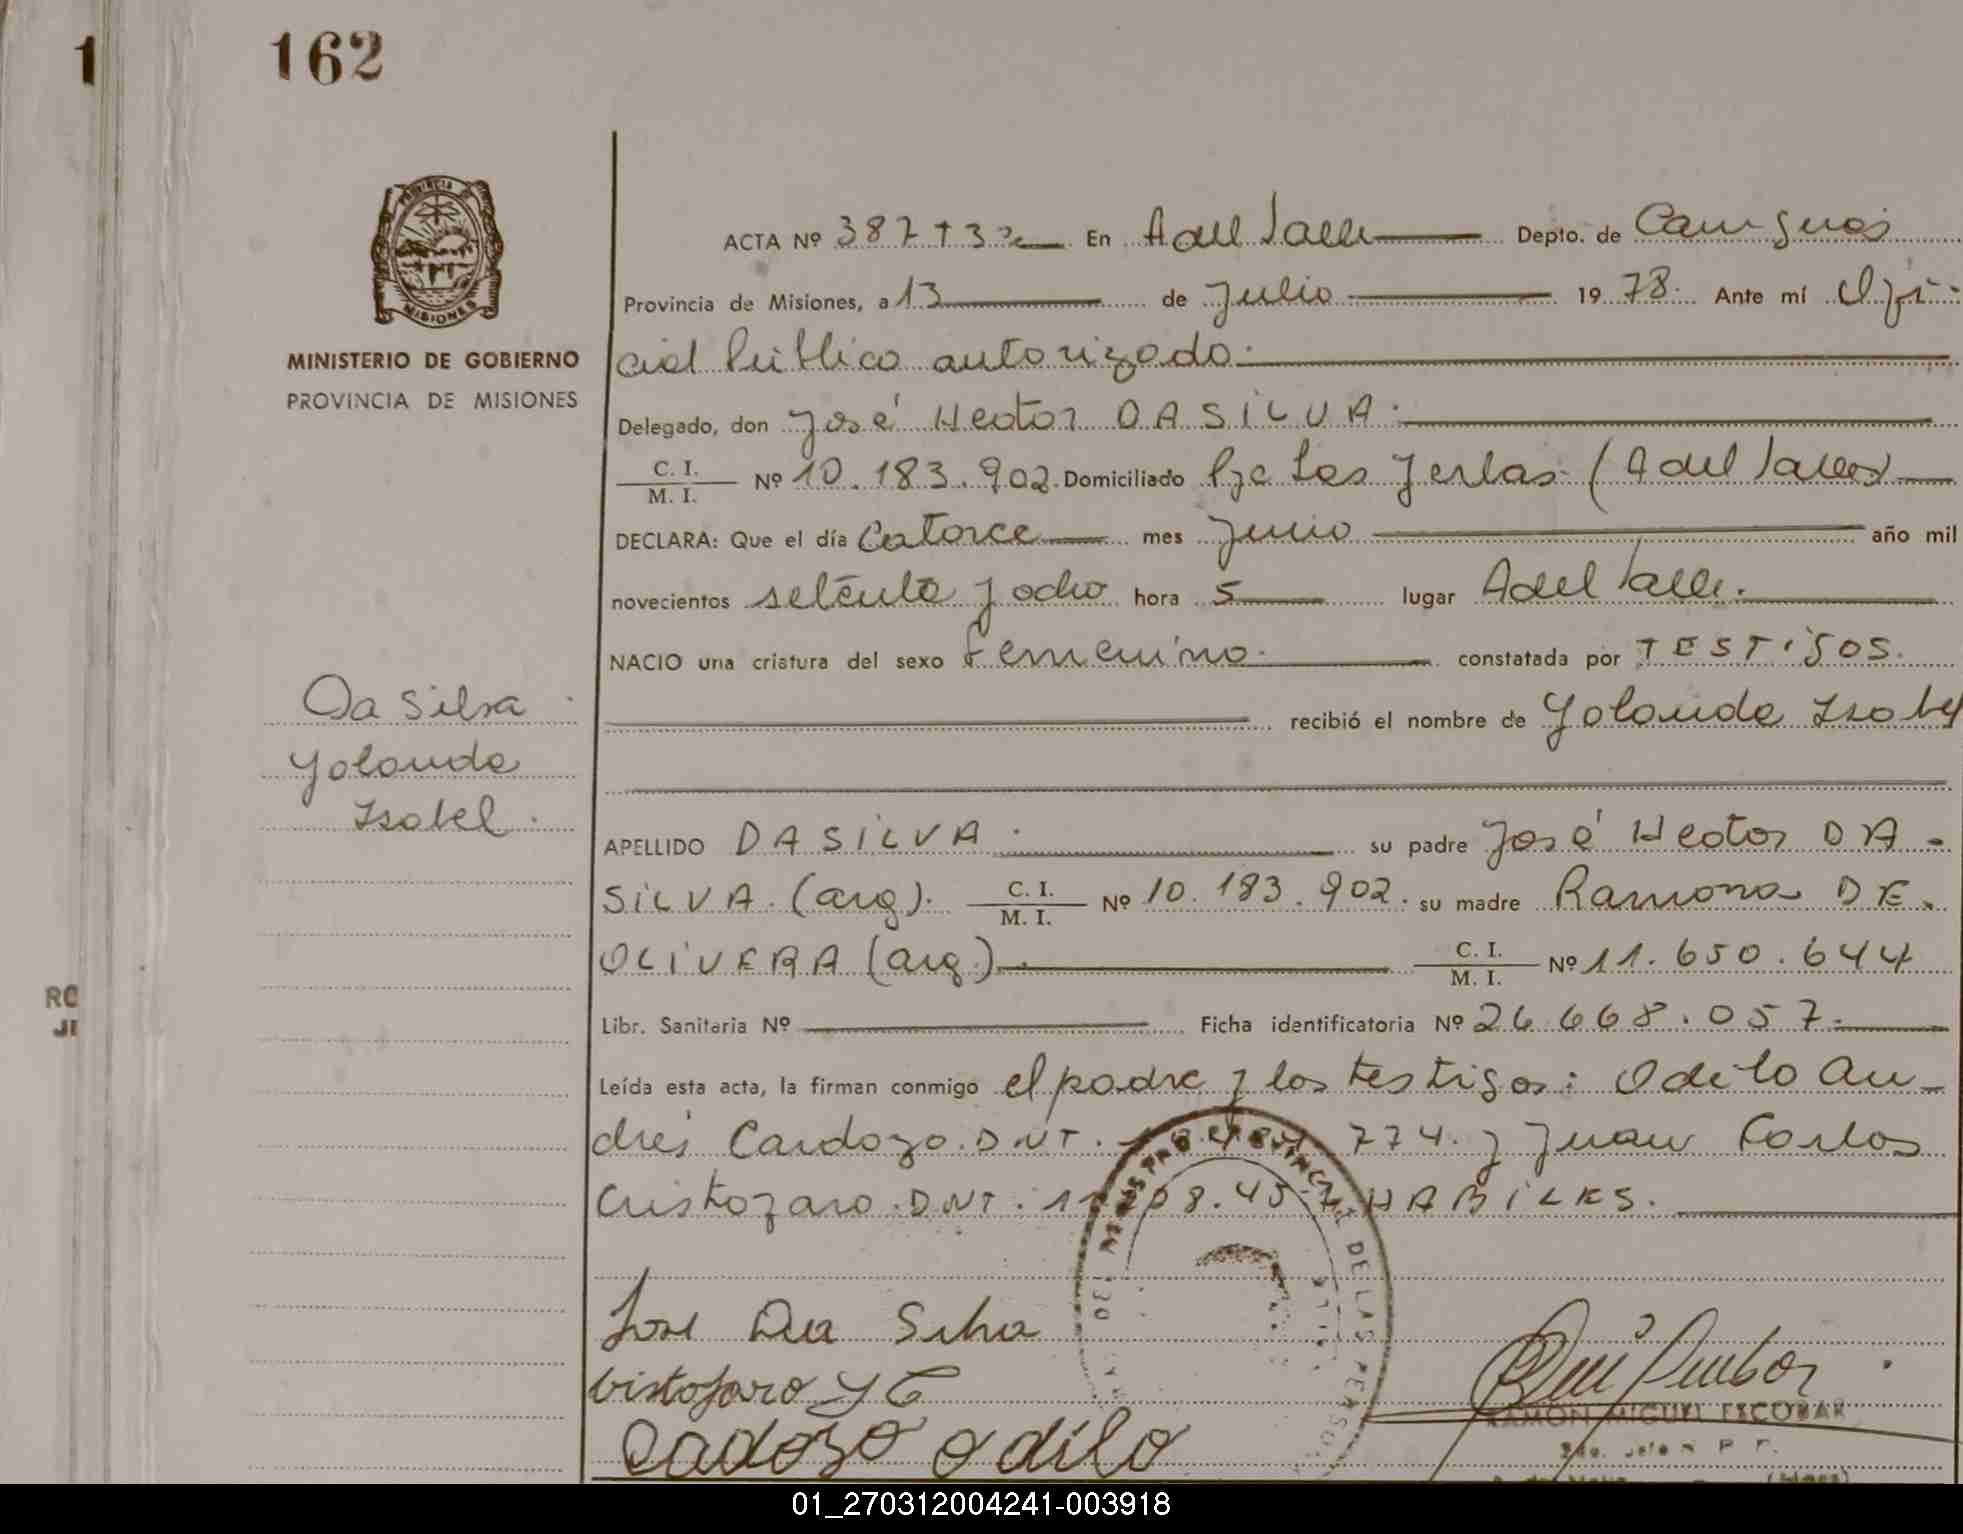 1
162
PROVINCIA
MISIONES
MINISTERIO DE GOBIERNO
PROVINCIA DE MISIONES
ACTA Nº 387 T 3º En A del Valle Depto. de Cainguás
Provincia de Misiones, a 13 de Julio 19 78. Ante mí Ofi-
cial Público autorizado.
Delegado, don José Hector DA SILVA.
C. I.
M. I. Nº 10.183.902. Domiciliado Pje Las Yerbas (A del Valle)
DECLARA: Que el día Catorce mes Junio año mil
novecientos setenta y ocho hora 5 lugar A del Valle.
NACIO una criatura del sexo femenino. constatada por TESTIGOS.
recibió el nombre de Yolanda Isabel
Da Silva
Yolanda
Isabel.
APELLIDO DA SILVA. su padre José Hector DA-
SILVA. (arg). C. I.
M. I. Nº 10.183.902. su madre Ramona DE.
OLIVERA (arg). C. I.
M. I. Nº 11.650.644
RO
JI
Libr. Sanitaria Nº Ficha identificatoria Nº 26.668.057.
Leída esta acta, la firman conmigo el padre y los testigos: Odilo An-
drés Cardozo. D.N.T. 774. y Juan Carlos
Cristozaro. D.N.T. HABILES.
PROVINCIAL DE LAS PERSONAS
Jose Da Silva
Cristofaro J C
Cadozo Odilo
RAMON MIGUEL ESCOBAR
01_270312004241-003918